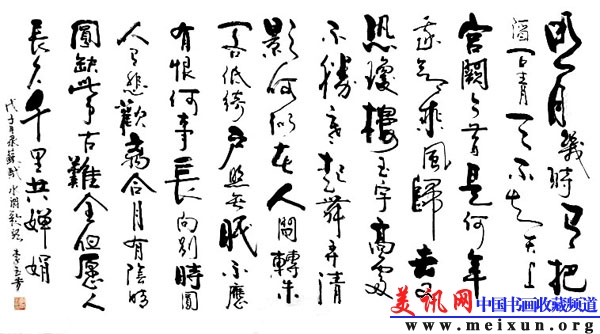 明月幾時有把
酒问青天不知天上
宫闕今昔是何年
我欲乘風歸去又
恐瓊樓玉宇高處
不勝寒起舞弄清
影何似在人間轉朱
閣低綺户照無眠不應
有恨何事長向别時圓
人有悲歡離合月有陰晴
圓缺此事古難全但愿人
長久千里共嬋娟
戊子年录蘇軾水調歌頭
美讯网 中国书画收藏频道
www.meixun.org